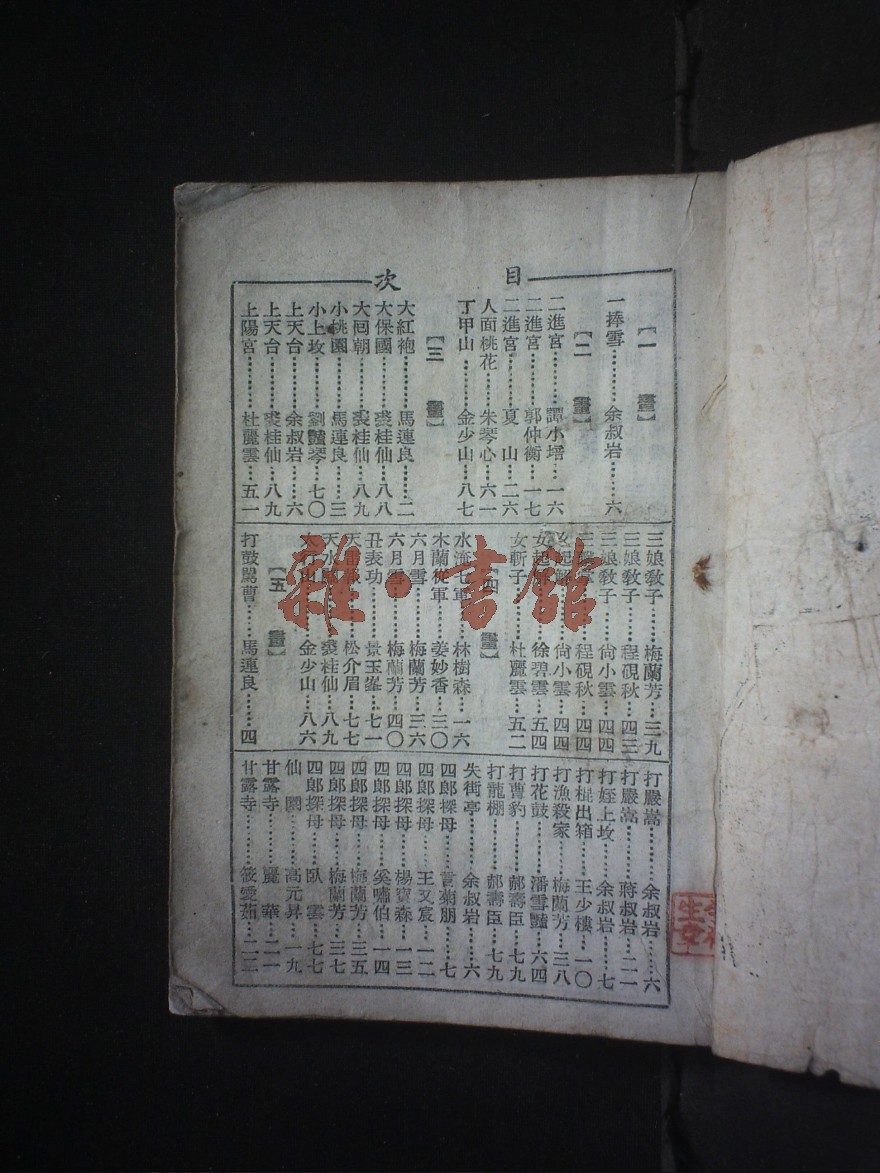 目次
【一畫】
一捧雪………余叔岩……六
【二畫】
二進宮………譚小培…一六
二進宮………郭仲衡…一七
二進宮………夏山…二六
人面桃花……朱琴心…六一
丁甲山………金少山…八七
【三畫】
大紅袍………馬連良……二
大保國………裘桂仙…八八
大回朝………裘桂仙…八九
小桃園………馬連良……三
小上坟………劉豔琴…七〇
上天台………余叔岩……六
上天台………裘桂仙…八九
上陽宮………杜麗雲…五一
三娘教子……梅蘭芳…三九
三娘教子……程硯秋…四三
三娘教子……尙小雲…四四
程硯秋…四四
女起解………尙小雲…四四
女起解………徐碧雲…五四
女斬子………杜麗雲…五二
【四畫】
水淹七軍……林樹森…一六
木蘭從軍……姜妙香…三〇
六月雪………梅蘭芳…三六
六月雪………梅蘭芳…四〇
丑表功………景玉峯…七一
天雷報………松介眉…七七
天水關………裘桂仙…八九
太行山………金少山…八六
【五畫】
打鼓罵曹……馬連良……四
打嚴嵩………余叔岩……六
打嚴嵩………蔣叔岩…二一
打姪上坟……余叔岩……七
打棍出箱……王少樓…一〇
打漁殺家……梅蘭芳…三八
打花鼓………潘雪豔…六四
打曹豹………郝壽臣…七九
打龍棚………郝壽臣…七九
失街亭………余叔岩……六
四郎探母……言菊朋……七
四郎探母……王又宸…一二
四郎探母……楊寶森…一三
四郎探母……奚嘯伯…一四
四郎探母……梅蘭芳…三五
四郎探母……梅蘭芳…三七
四郎探母……臥雲…七七
仙圓………高元昇…一九
甘露寺………麗華…二一
甘露寺………筱愛茹…二三
雜·書館